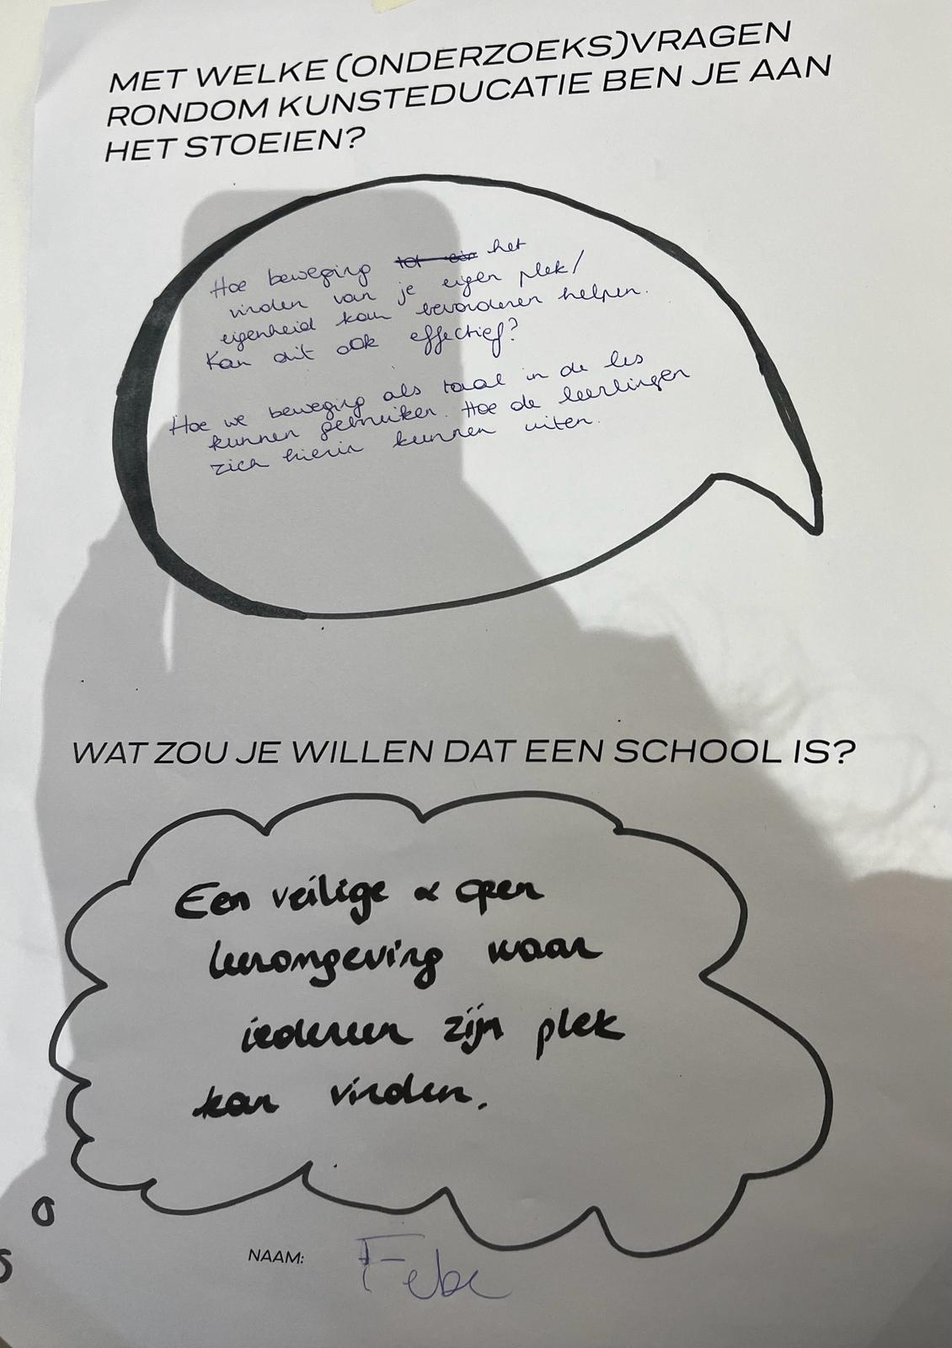 MET WELKE (ONDERZOEKS)VRAGEN
RONDOM KUNSTEDUCATIE BEN JE AAN
HET STOEIEN?
Hoe beweging tot een het
vinden van je eigen plek/
eigenheid kan bevorderen helpen.
Kan dit ook effectief?
Hoe we beweging als taal in de les
kunnen gebruiken. Hoe de leerlingen
zich hierin kunnen uiten.
WAT ZOU JE WILLEN DAT EEN SCHOOL IS?
Een veilige & open
leeromgeving waar
iedereen zijn plek
kan vinden.
NAAM: Febe